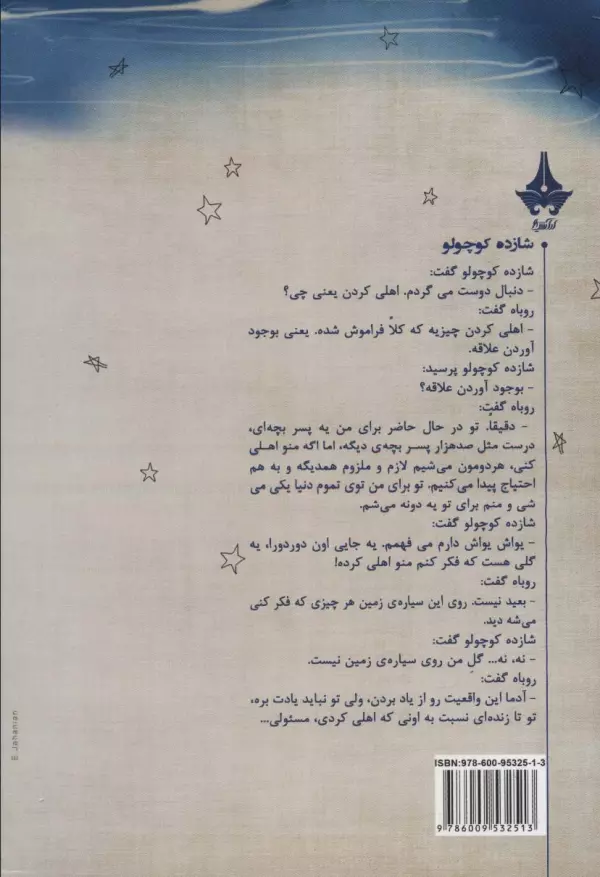 شازده کوچولو
شازده کوچولو گفت:
- دنبال دوست می گردم. اهلی کردن یعنی چی؟
روباه گفت:
- اهلی کردن چیزیه که کلاً فراموش شده. یعنی بوجود
آوردن علاقه.
شازده کوچولو پرسید:
- بوجود آوردن علاقه؟
روباه گفت:
- دقیقاً. تو در حال حاضر برای من یه پسر بچه‌ای،
درست مثل صدهزار پسر بچه‌ی دیگه، اما اگه منو اهلی
کنی، هردومون می‌شیم لازم و ملزوم همدیگه و به هم
احتیاج پیدا می‌کنیم. تو برای من توی تموم دنیا یکی می
شی و منم برای تو یه دونه می‌شم.
شازده کوچولو گفت:
- یواش یواش دارم می فهمم. یه جایی اون دوردورا، یه
گلی هست که فکر کنم منو اهلی کرده!
روباه گفت:
- بعید نیست. روی این سیاره‌ی زمین هر چیزی که فکر کنی
می‌شه دید.
شازده کوچولو گفت:
- نه، نه... گل من روی سیاره‌ی زمین نیست.
روباه گفت:
- آدما این واقعیت رو از یاد بردن، ولی تو نباید یادت بره،
تو تا زنده‌ای نسبت به اونی که اهلی کردی، مسئولی...
B. Jahanian
ISBN:978-600-95325-1-3
9 786009 532513